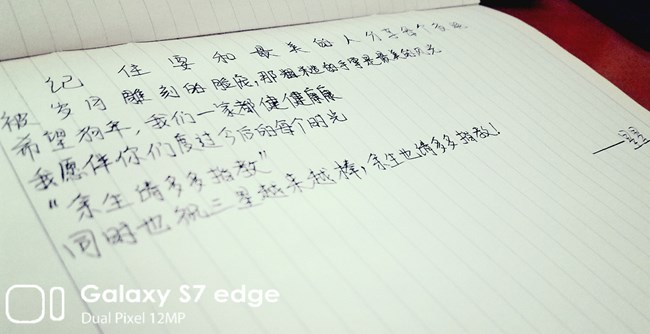 记住要和最亲的人分享每个
被岁月雕刻的脸庞,那粗糙的手掌是最亲的
希望狗年,我们一家都健健康康
我愿伴你们度过今后的每个时光
“余生请多多指教”
同时也祝三星越来越棒,余生也请多多指教!
Galaxy S7 edge
Dual Pixel 12MP